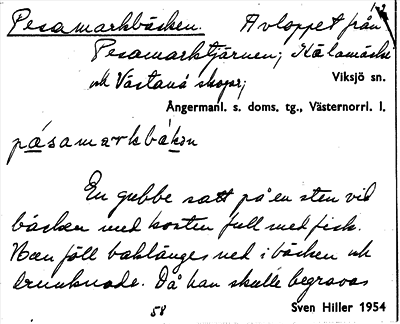 Pesamarkbäcken. Avloppet från
Pesamarktjärnen; Kälamäcke
och Västanå skogar;
Viksjö sn.
Ångermanl. s. doms. tg., Västernorrl. l.
pásamarkbä̀kən
En gubbe satt på en sten vid
bäcken med kosten full med fisk.
Han föll baklänges ned i bäcken och
drunknade. Då han skulle begravas
58
Sven Hiller 1954